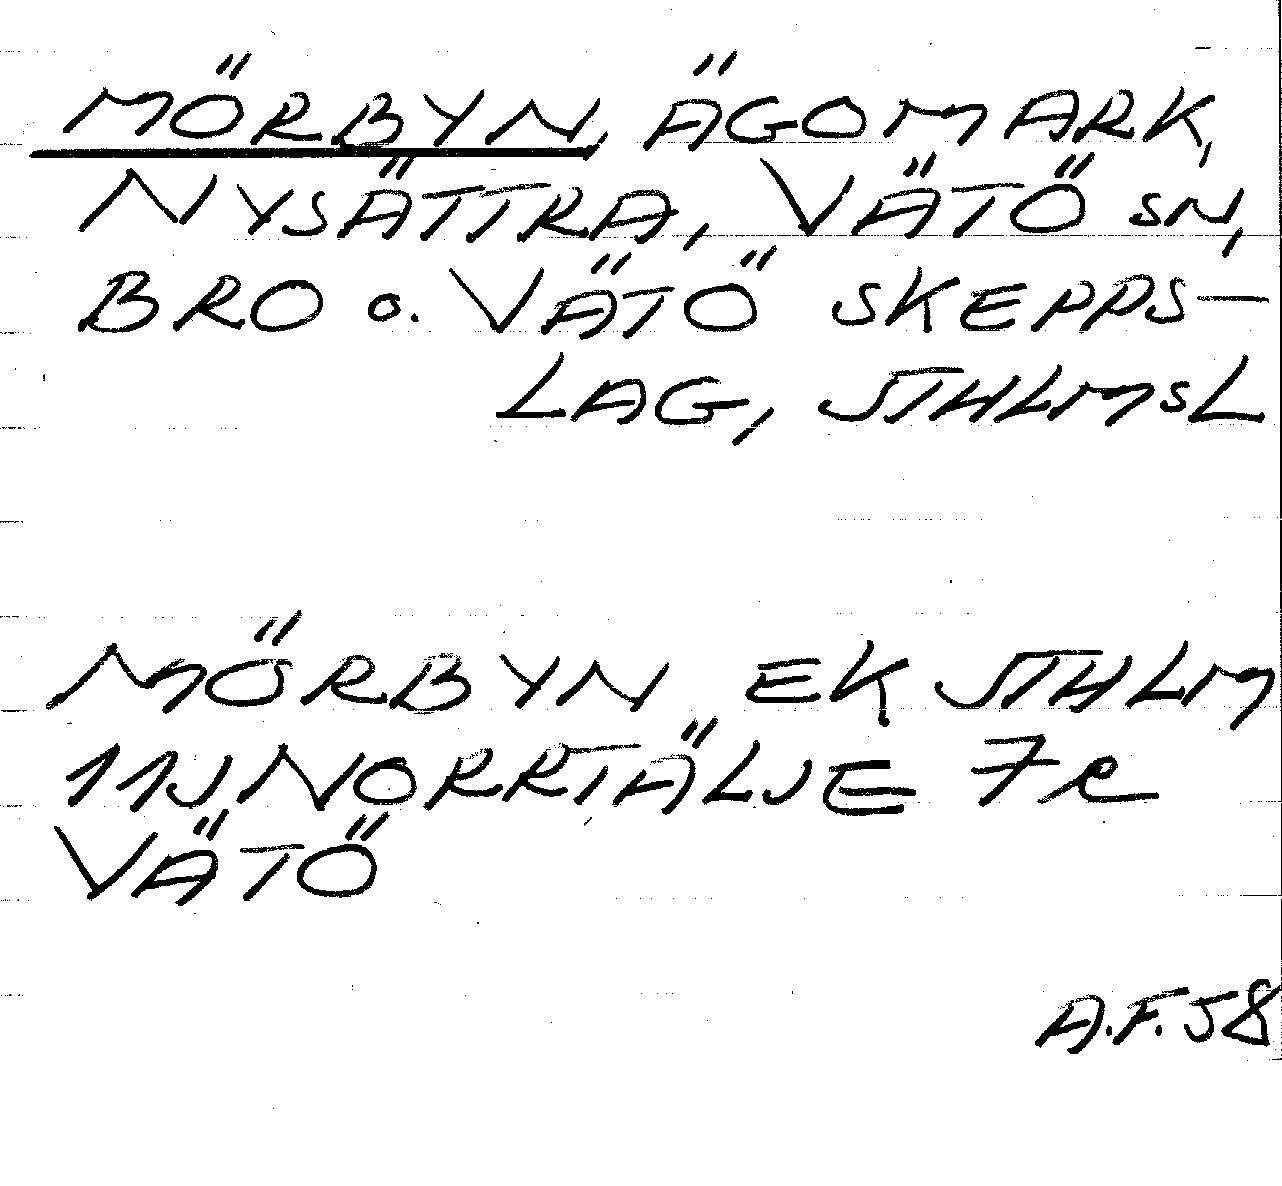 MÖRBYN, ÄGOMARK,
NYSÄTTRA, VÄTÖ SN,
BRO o. VÄTÖ SKEPPS-
LAG, STHLMSL
MÖRBYN EK STHLM
11J NORRTÄLJE 7e
VÄTÖ
A.F. 58